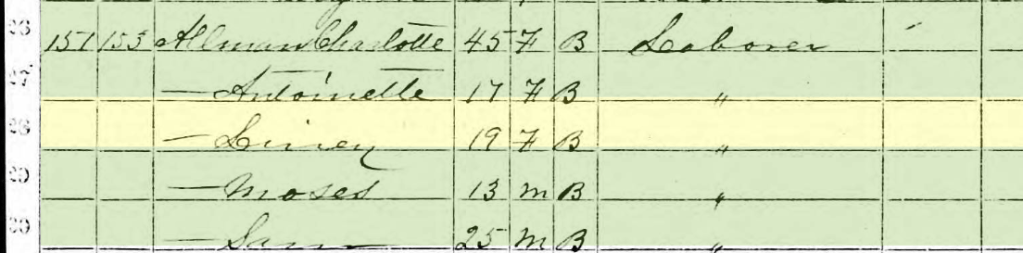 151 153 Allman Charlotte 45 F B Laborer
— Antoinette 17 F B "
— 19 F B "
29 — Moses 13 M B "
30 — Sam 25 M B "